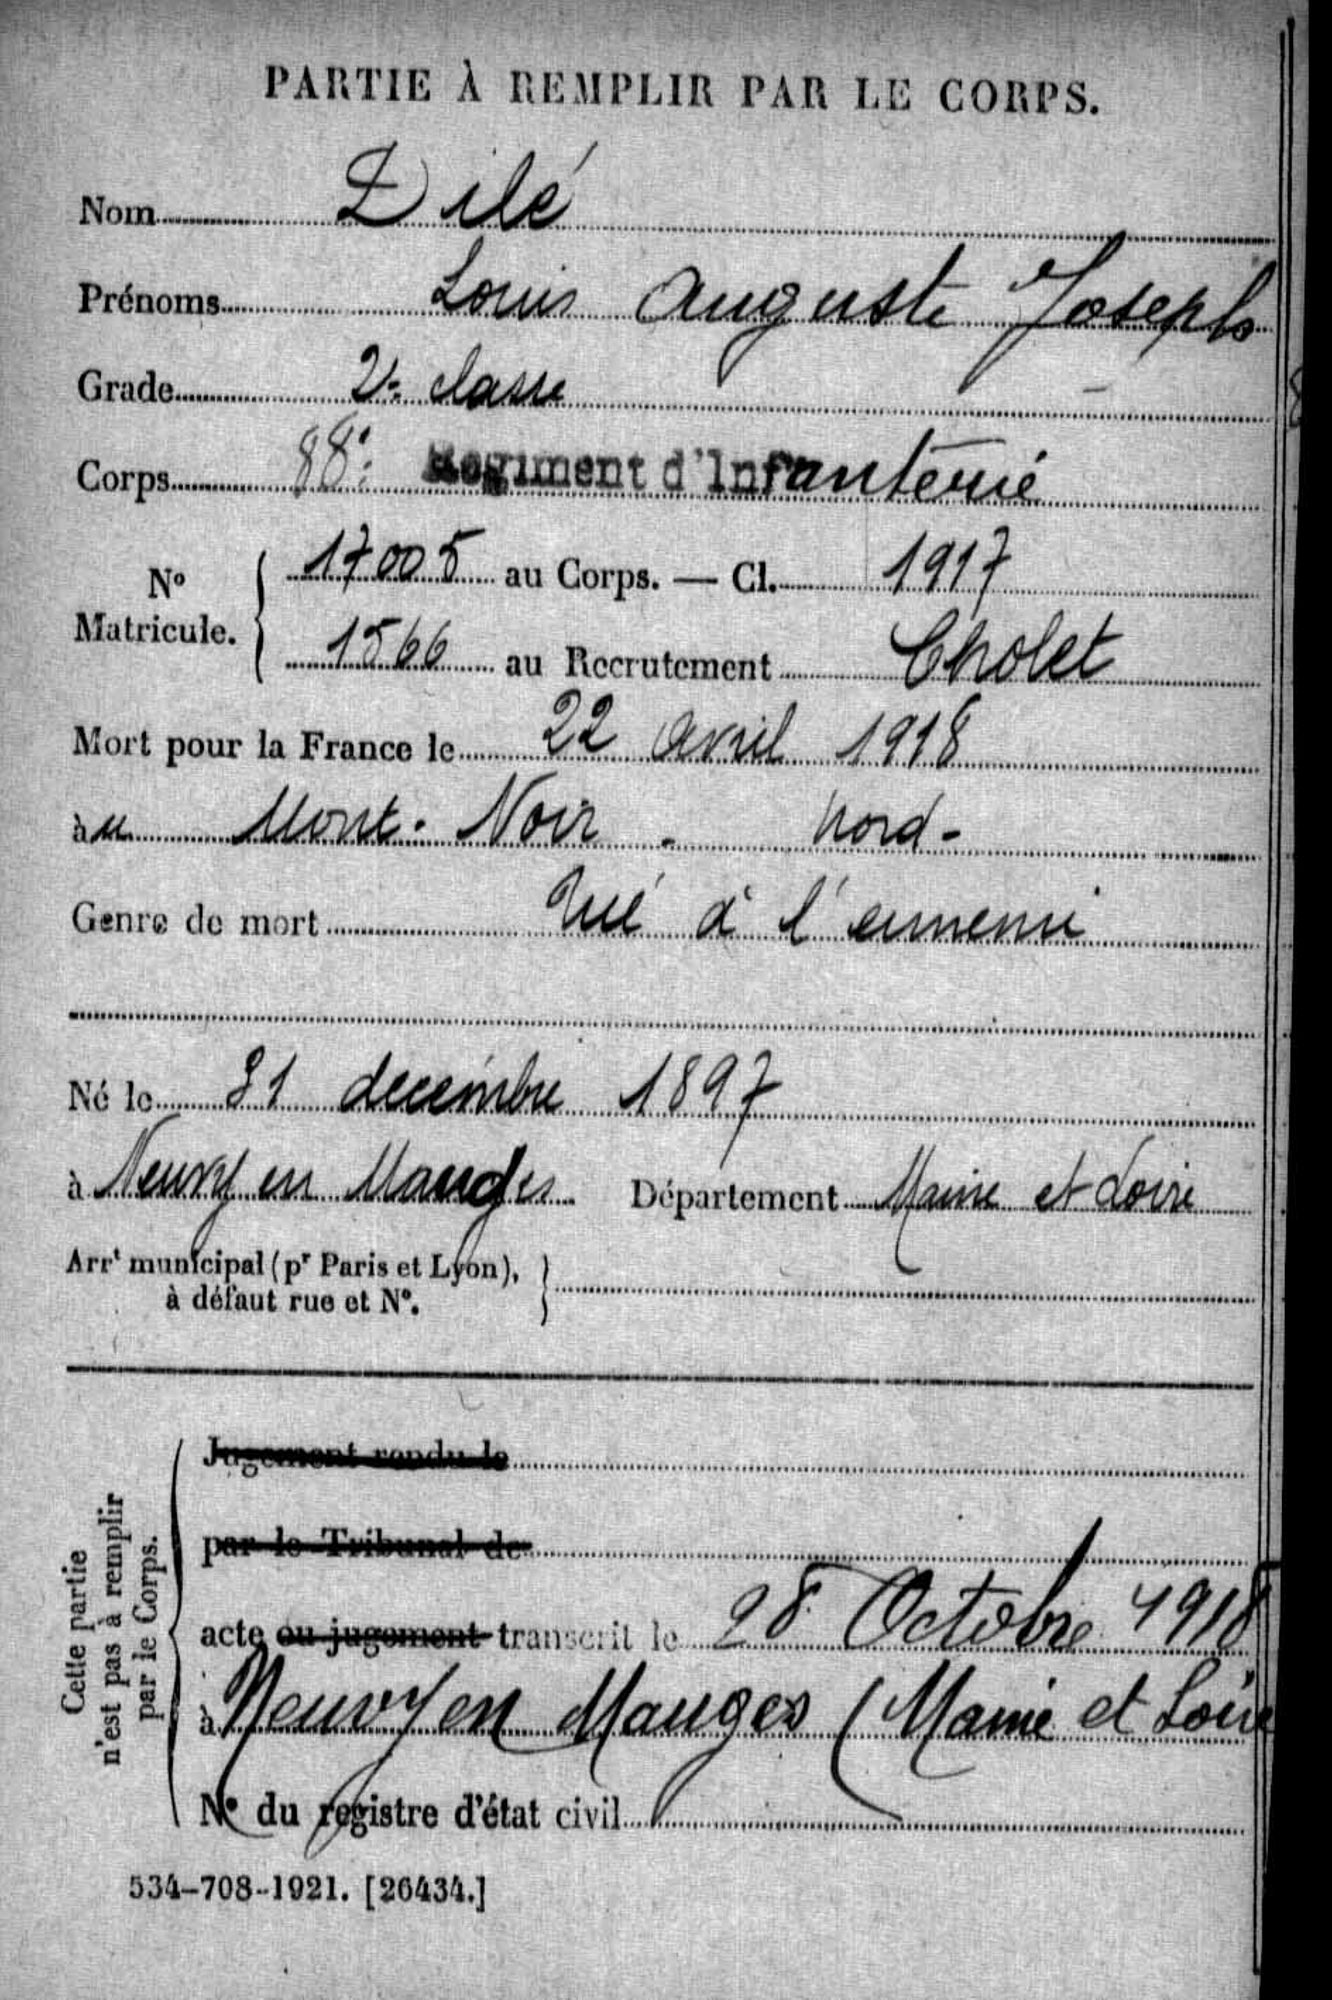 PARTIE À REMPLIR PAR LE CORPS.
Nom Dilé
Prénoms Louis Auguste Joseph
Grade 2e classe
Corps 88e Régiment d'Infanterie
N° Matricule. 17005 au Corps. — Cl. 1917
1566 au Recrutement Cholet
Mort pour la France le 22 avril 1918
à u Mont-Noir - Nord -
Genre de mort Tué à l'ennemi
Né le 31 décembre 1897
à Neuvy en Mauges Département Maine et Loire
Arrt municipal (pr Paris et Lyon),
à défaut rue et N°.
Cette partie
n'est pas à remplir
par le Corps.
Jugement rendu le
par le Tribunal de
acte ou jugement transcrit le 28 Octobre 1918
à Neuvy en Mauges (Maine et Loire
N° du registre d'état civil
534-708-1921. [26434.]